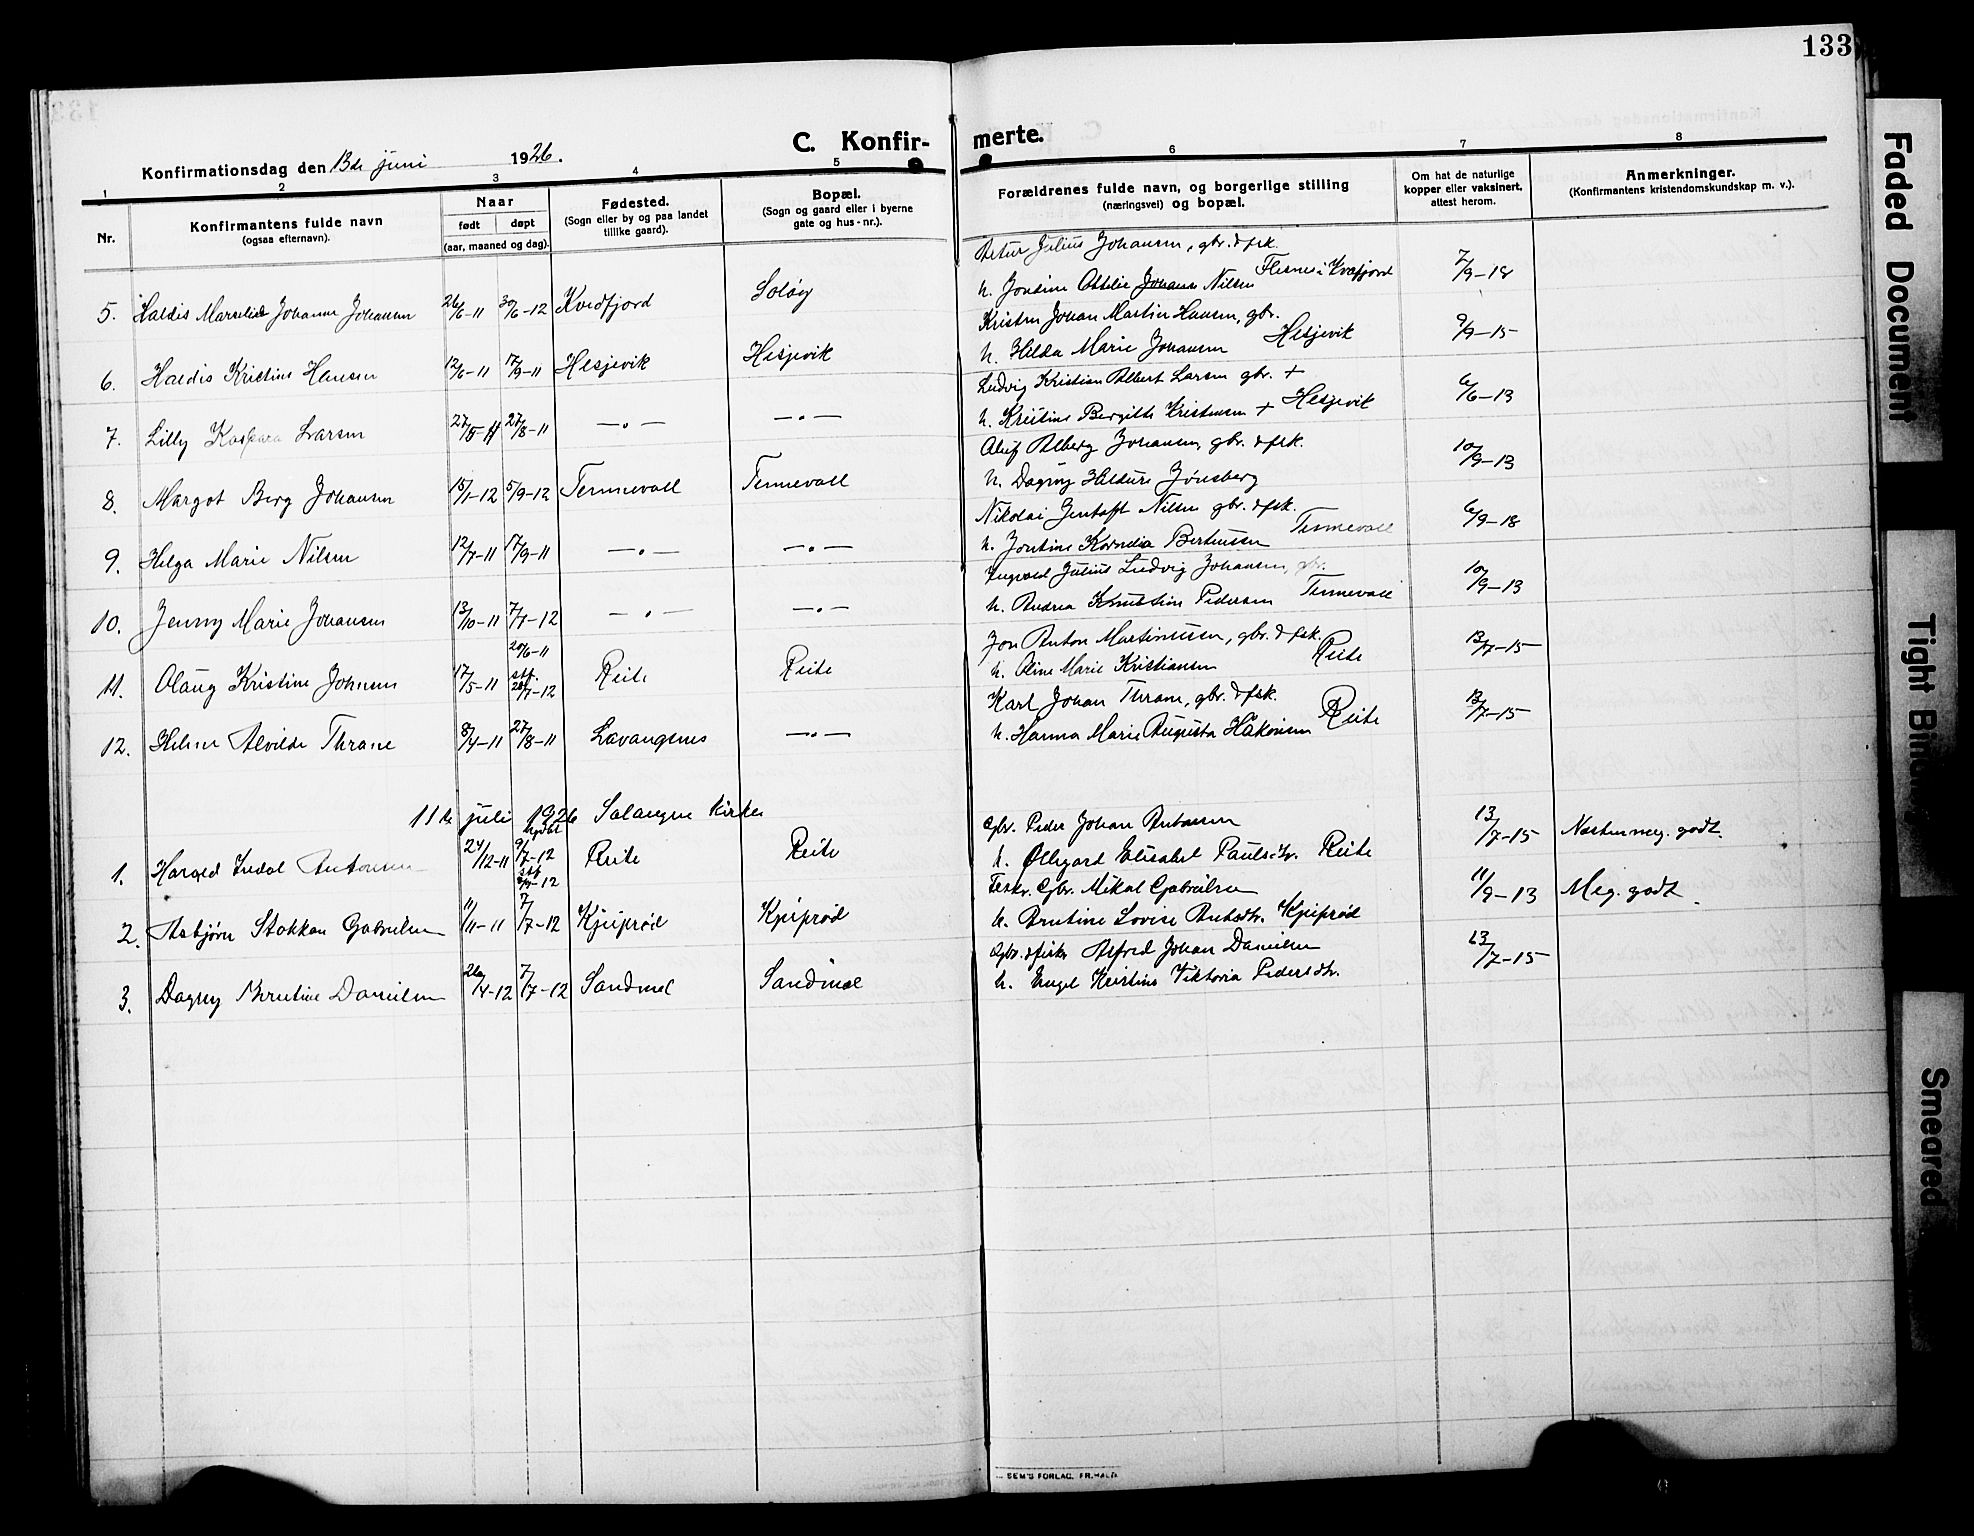 133
C. Konfir-
merte.
Konfirmationsdag den 13de juni 1926.
1 2 3 4 5 6 7 8
Nr.
Konfirmantens fulde navn
(ogsaa efternavn).
Naar
født døpt
(aar, maaned og dag).
Fødested.
(Sogn eller by og paa landet
tillike gaard).
Bopæl.
(Sogn og gaard eller i byerne
gate og hus-nr.).
Forældrenes fulde navn, og borgerlige stilling
(næringsvei) og bopæl.
Om hat de naturlige
kopper eller vaksinert,
attest herom.
Anmerkninger.
(Konfirmantens kristendomskundskap m. v.).
Artur Julius Johansen, gbr. & fsk.
5. Haldis Marselie Johanne Johansen 26/6-11 30/6-12 Kvedfjord Soløy
h. Jontine Ottilie Nilsen Flesnes i Kvæfjord 7/9-18
Kristen Johan Martin Hansen, gbr.
6. Haldis Kristine Hansen 12/6-11 17/9-11 Hesjevik Hesjevik
h. Hilda Marie Johansen Hesjevik 9/9-15
Ludvig Kristian Albert Larsen gbr. +
7. Lilly Kaspara Larsen 27/5-11 27/8-11 —„— —„—
h. Kristine Bergitte Kristensen + Hesjevik 6/6-13
Aluf Alberg Johansen, gbr. & fsk.
8. Margot Berg Johansen 15/1-12 5/9-12 Tennevoll Tennevoll
h. Dagny Hildur Jønsberg 10/9-13
Nikolai Jentoft Nilsen gbr. & fsk.
9. Helga Marie Nilsen 12/7-11 17/9-11 —„— —„—
h. Jontine Kornelia Bertensen Tennevoll 6/9-18
Ingvald Julius Ludvig Johansen, gbr.
10. Jenny Marie Johansen 13/10-11 7/1-12 —„— —„—
h. Andrea Knutine Pedersen Tennevoll 10/9-13
Jon Anton Martinussen, gbr. & fsk.
11. Olaug Kristine Johnsen 17/5-11 20/6-11 stf. 28/1-12 Reite Reite
h. Oline Marie Kristiansen Reite 13/7-15
Karl Johan Thrane, gbr. & fsk.
12. Helner Alvilde Thrane 8/4-11 27/8-11 Lavangsnes —„—
h. Hanna Marie Augusta Håkonsen Reite 13/7-15
11te juli 1926 Salangen kirke
Gbr. Peder Johan Antonsen
1. Harald Indal Antonsen 24/12-11 hjdbt 9/7-12 stf. Reite Reite
h. Ollegard Elisabet Paulsdtr. Reite 13/7-15 Næsten meg. godt
Fisker. Gbr. Mikal Gabrielsen
2. Asbjørn Stokkan Gabrielsen 11/11-11 7/7-12 Kjeiprød Kjeiprød
h. Brutine Lovise Antsdtr. Kjeiprød 11/9-13 Meg. godt
Gbr. & fisker Alfred Johan Danielsen
3. Dagny Brutine Danielsen 26/4-12 7/7-12 Sandmel Sandmæl
h. Engel Kristine Viktoria Pedersdtr. 13/7-15
SEM'S FORLAG, FR.HALD
Faded Document
Tight Binding
Smeared